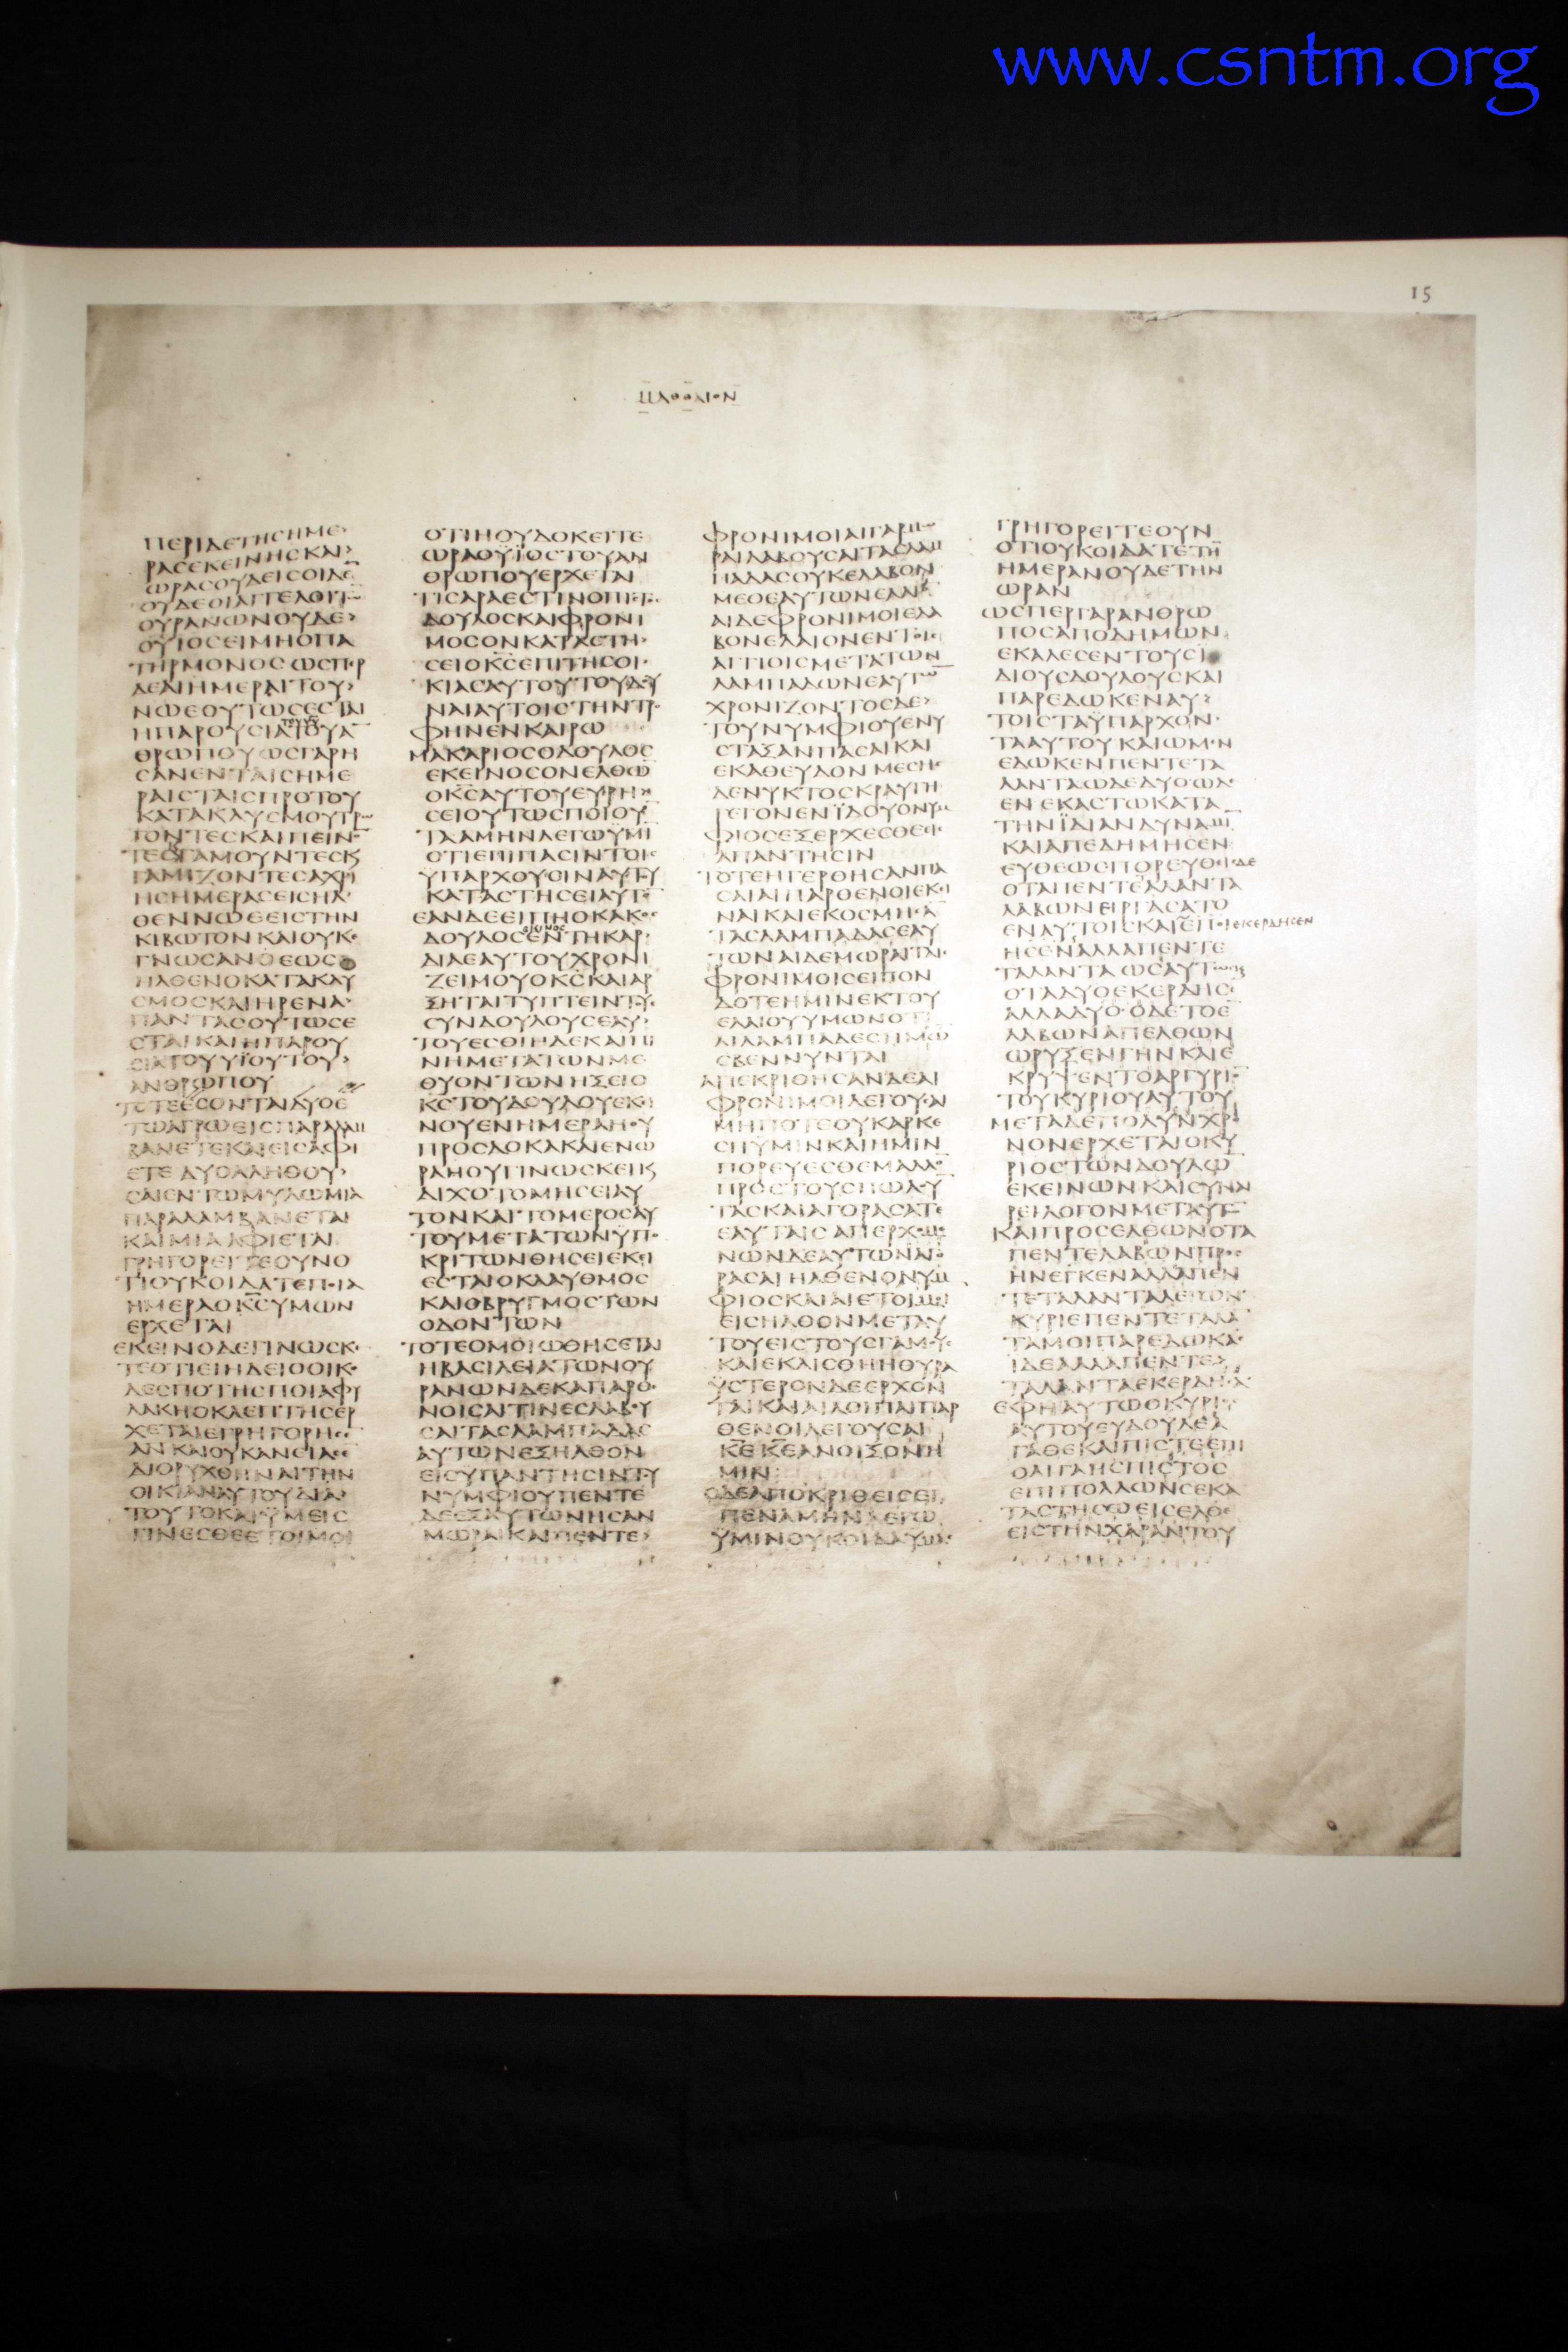 www.csntm.org
15
ΜΑΘΘΑΙΟΝ
ΠΕΡΙΔΕΤΗCΗΜΕ
ΡΑCΕΚΕΙΝΗCΚΑΙ
ΩΡΑCΟΥΔΕΙCΟΙΔΕ
ΟΥΔΕΟΙΑΓΓΕΛΟΙΤΩ
ΟΥΡΑΝΩΝΟΥΔΕ
ΟΥΙΟCΕΙΜΗΟΠΑ
ΤΗΡΜΟΝΟCΩCΠΕΡ
ΔΕΑΙΗΜΕΡΑΙΤΟΥ
ΝΩΕΟΥΤΩCΕCΤΑΙ
ΗΠΑΡΟΥCΙΑΤΟΥΑ
ΘΡΩΠΟΥΩCΓΑΡΗ
CΑΝΕΝΤΑΙCΗΜΕ
ΡΑΙCΤΑΙCΠΡΟΤΟΥ
ΚΑΤΑΚΛΥCΜΟΥΤΡΩ
ΓΟΝΤΕCΚΑΙΠΕΙΝΟ
ΤΕCΓΑΜΟΥΝΤΕCΚ
ΓΑΜΙΖΟΝΤΕCΑΧΡΙ
ΗCΗΜΕΡΑCΕΙCΗΛ
ΘΕΝΝΩΕΕΙCΤΗΝ
ΚΙΒΩΤΟΝΚΑΙΟΥΚΕ
ΓΝΩCΑΝΕΩC
ΗΛΘΕΝΟΚΑΤΑΚΛΥ
CΜΟCΚΑΙΗΡΕΝΑ
ΠΑΝΤΑCΟΥΤΩCΕ
CΤΑΙΚΑΙΗΠΑΡΟΥ
CΙΑΤΟΥΥΪΟΥΤΟΥ
ΑΝΘΡΩΠΟΥ
ΤΟΤΕΕCΟΝΤΑΙΔΥΟΕ
ΤΩΑΓΡΩΕΙCΠΑΡΑΛΑΜ
ΒΑΝΕΤΕΚΑΙΕΙCΑΦΙ
ΕΤΕΔΥΟΑΛΗΘΟΥ
CΑΙΕΝΤΩΜΥΛΩΜΙΑ
ΠΑΡΑΛΑΜΒΑΝΕΤΑΙ
ΚΑΙΜΙΑΑΦΙΕΤΑΙ
ΓΡΗΓΟΡΕΙΤΕΟΥΝΟ
ΤΙΟΥΚΟΙΔΑΤΕΠΟΙΑ
ΗΜΕΡΑΟΚCΥΜΩΝ
ΕΡΧΕΤΑΙ
ΕΚΕΙΝΟΔΕΓΙΝΩCΚΕ
ΤΕΟΤΙΕΙΗΔΕΙΟΟΙΚΟ
ΔΕCΠΟΤΗCΠΟΙΑΦΥ
ΛΑΚΗΟΚΛΕΠΤΗCΕΡ
ΧΕΤΑΙΕΓΡΗΓΟΡΗCΕ
ΑΝΚΑΙΟΥΚΑΝΕΙΑCΕ
ΔΙΟΡΥΧΘΗΝΑΙΤΗΝ
ΟΙΚΙΑΝΑΥΤΟΥΔΙΑ
ΤΟΥΤΟΚΑΙΫΜΕΙC
ΓΙΝΕCΘΕΕΤΟΙΜΟΙ
ΟΤΙΗΟΥΔΟΚΕΙΤΕ
ΩΡΑΟΥΪΟCΤΟΥΑΝ
ΘΡΩΠΟΥΕΡΧΕΤΑΙ
ΤΙCΑΡΑΕCΤΙΝΟΠΙCΤΟC
ΔΟΥΛΟCΚΑΙΦΡΟΝΙ
ΜΟCΟΝΚΑΤΑCΤΗ
CΕΙΟΚCΕΠΙΤΗCΟΙ
ΚΙΑCΑΥΤΟΥΤΟΥΔΟΥ
ΝΑΙΑΥΤΟΙCΤΗΝΤΡΟ
ΦΗΝΕΝΚΑΙΡΩ
ΜΑΚΑΡΙΟCΟΔΟΥΛΟC
ΕΚΕΙΝΟCΟΝΕΛΘΩ
ΟΚCΑΥΤΟΥΕΥΡΗ
CΕΙΟΥΤΩCΠΟΙΟΥ
ΤΑΑΜΗΝΛΕΓΩΫΜΙ
ΟΤΙΕΠΙΠΑCΙΝΤΟΙC
ΥΠΑΡΧΟΥCΙΝΑΥΤΟΥ
ΚΑΤΑCΤΗCΕΙΑΥΤΟ
ΕΑΝΔΕΕΙΠΗΟΚΑΚΟC
ΔΟΥΛΟCΕΝΤΗΚΑΡ
ΔΙΑΕΑΥΤΟΥΧΡΟΝΙ
ΖΕΙΜΟΥΟΚCΚΑΙΑΡ
ΞΗΤΑΙΤΥΠΤΕΙΝΤΟΥC
CΥΝΔΟΥΛΟΥCΕΑΥ
ΤΟΥΕCΘΙΗΔΕΚΑΙΠΙ
ΝΗΜΕΤΑΤΩΝΜΕ
ΘΥΟΝΤΩΝΗΞΕΙΟ
ΚCΤΟΥΔΟΥΛΟΥΕΚΕΙ
ΝΟΥΕΝΗΜΕΡΑΗΟΥ
ΠΡΟCΔΟΚΑΚΑΙΕΝΩ
ΡΑΗΟΥΓΙΝΩCΚΕΙΚ
ΔΙΧΟΤΟΜΗCΕΙΑΥ
ΤΟΝΚΑΙΤΟΜΕΡΟCΑΥ
ΤΟΥΜΕΤΑΤΩΝΫΠΟ
ΚΡΙΤΩΝΘΗCΕΙΕΚΕΙ
ΕCΤΑΙΟΚΛΑΥΘΜΟC
ΚΑΙΟΒΡΥΓΜΟCΤΩΝ
ΟΔΟΝΤΩΝ
ΤΟΤΕΟΜΟΙΩΘΗCΕΤΑΙ
ΗΒΑCΙΛΕΙΑΤΩΝΟΥ
ΡΑΝΩΝΔΕΚΑΠΑΡΘΕ
ΝΟΙCΑΙΤΙΝΕCΛΑΒΟΥ
CΑΙΤΑCΛΑΜΠΑΔΑC
ΑΥΤΩΝΕΞΗΛΘΟΝ
ΕΙCΥΠΑΝΤΗCΙΝΤΟΥ
ΝΥΜΦΙΟΥΠΕΝΤΕ
ΔΕΕΞΑΥΤΩΝΗCΑΝ
ΜΩΡΑΙΚΑΙΠΕΝΤΕ
ΦΡΟΝΙΜΟΙΑΙΓΑΡΜΩ
ΡΑΙΛΑΒΟΥCΑΙΤΑCΛΑΜ
ΠΑΔΑCΟΥΚΕΛΑΒΟΝ
ΜΕΘΕΑΥΤΩΝΕΛΑΙ
ΑΙΔΕΦΡΟΝΙΜΟΙΕΛΑ
ΒΟΝΕΛΑΙΟΝΕΝΤΟΙC
ΑΓΓΙΟΙCΜΕΤΑΤΩΝ
ΛΑΜΠΑΔΩΝΕΑΥΤΩ
ΧΡΟΝΙΖΟΝΤΟCΔΕ
ΤΟΥΝΥΜΦΙΟΥΕΝΥ
CΤΑΞΑΝΠΑCΑΙΚΑΙ
ΕΚΑΘΕΥΔΟΝΜΕCΗC
ΔΕΝΥΚΤΟCΚΡΑΥΓΗ
ΓΕΓΟΝΕΝΪΔΟΥΟΝΥΜ
ΦΙΟCΕΞΕΡΧΕCΘΕΕΙC
ΑΠΑΝΤΗCΙΝ
ΤΟΤΕΗΓΕΡΘΗCΑΝΠΑ
CΑΙΑΙΠΑΡΘΕΝΟΙΕΚΕΙ
ΝΑΙΚΑΙΕΚΟCΜΗCΑ
ΤΑCΛΑΜΠΑΔΑCΕΑΥ
ΤΩΝΑΙΔΕΜΩΡΑΙΤΑΙC
ΦΡΟΝΙΜΟΙCΕΙΠΟΝ
ΔΟΤΕΗΜΙΝΕΚΤΟΥ
ΕΛΑΙΟΥΥΜΩΝΟΤΙ
ΑΙΛΑΜΠΑΔΕCΗΜΩ
CΒΕΝΝΥΝΤΑΙ
ΑΠΕΚΡΙΘΗCΑΝΔΕΑΙ
ΦΡΟΝΙΜΟΙΛΕΓΟΥCΑΙ
ΜΗΠΟΤΕΟΥΚΑΡΚΕ
CΗΥΜΙΝΚΑΙΗΜΙΝ
ΠΟΡΕΥΕCΘΕΜΑΛΛΟ
ΠΡΟCΤΟΥCΠΩΛΟΥ
ΤΑCΚΑΙΑΓΟΡΑCΑΤΕ
ΕΑΥΤΑΙCΑΠΕΡΧΟΜΕ
ΝΩΝΔΕΑΥΤΩΝΑΓΟ
ΡΑCΑΙΗΛΘΕΝΟΝΥΜ
ΦΙΟCΚΑΙΑΙΕΤΟΙΜΟΙ
ΕΙCΗΛΘΟΝΜΕΤΑΥ
ΤΟΥΕΙCΤΟΥCΓΑΜΟΥC
ΚΑΙΕΚΛΙCΘΗΗΘΥΡΑ
ΫCΤΕΡΟΝΔΕΕΡΧΟΝ
ΤΑΙΚΑΙΑΙΛΟΙΠΑΙΠΑΡ
ΘΕΝΟΙΛΕΓΟΥCΑΙ
ΚΕΚΕΑΝΟΙΞΟΝΗ
ΜΙΝ
ΟΔΕΑΠΟΚΡΙΘΕΙCΕΙ
ΠΕΝΑΜΗΝΛΕΓΩ
ΫΜΙΝΟΥΚΟΙΔΑΥΜΑC
ΓΡΗΓΟΡΕΙΤΕΟΥΝ
ΟΤΙΟΥΚΟΙΔΑΤΕΤΗ
ΗΜΕΡΑΝΟΥΔΕΤΗΝ
ΩΡΑΝ
ΩCΠΕΡΓΑΡΑΝΘΡΩ
ΠΟCΑΠΟΔΗΜΩΝ
ΕΚΑΛΕCΕΝΤΟΥCΙ
ΔΙΟΥCΔΟΥΛΟΥCΚΑΙ
ΠΑΡΕΔΩΚΕΝΑΥ
ΤΟΙCΤΑΫΠΑΡΧΟΝ
ΤΑΑΥΤΟΥΚΑΙΩΜΕΝ
ΕΔΩΚΕΝΠΕΝΤΕΤΑ
ΛΑΝΤΑΩΔΕΔΥΟΩΔΕ
ΕΝΕΚΑCΤΩΚΑΤΑ
ΤΗΝΪΔΙΑΝΔΥΝΑΜΙ
ΚΑΙΑΠΕΔΗΜΗCΕΝ
ΕΥΘΕΩCΠΟΡΕΥΘΙCΔΕ
ΟΤΑΠΕΝΤΕΑΛΑΝΤΑ
ΛΑΒΩΝΕΙΡΓΑCΑΤΟ
ΕΝΑΥΤΟΙCΚΑΙΕΠΟΙΕΚΕΡΔΗCΕΝ
ΗCΕΝΑΛΛΑΠΕΝΤΕ
ΤΑΛΑΝΤΑΩCΑΥΤΩC
ΟΤΑΔΥΟΕΚΕΡΔΗCΕ
ΑΛΛΑΔΥΟΟΔΕΤΟΕ
ΛΑΒΩΝΑΠΕΛΘΩΝ
ΩΡΥΞΕΝΓΗΝΚΑΙΕ
ΚΡΥΨΕΝΤΟΑΡΓΥΡΙΟ
ΤΟΥΚΥΡΙΟΥΑΥΤΟΥ
ΜΕΤΑΔΕΠΟΛΥΝΧΡΟ
ΝΟΝΕΡΧΕΤΑΙΟΚΥ
ΡΙΟCΤΩΝΔΟΥΛΩ
ΕΚΕΙΝΩΝΚΑΙCΥΝΑΙ
ΡΕΙΛΟΓΟΝΜΕΤΑΥΤΩ
ΚΑΙΠΡΟCΕΛΘΩΝΟΤΑ
ΠΕΝΤΕΛΑΒΩΝΠΡΟC
ΗΝΕΓΚΕΝΑΛΛΑΠΕΝ
ΤΕΤΑΛΑΝΤΑΛΕΓΩΝ
ΚΥΡΙΕΠΕΝΤΕΤΑΛΑ
ΤΑΜΟΙΠΑΡΕΔΩΚΑC
ΪΔΕΑΛΛΑΠΕΝΤΕ
ΤΑΛΑΝΤΑΕΚΕΡΔΗCΑ
ΕΦΗΑΥΤΩΟΚΥΡΙΟC
ΑΥΤΟΥΕΥΔΟΥΛΕΑ
ΓΑΘΕΚΑΙΠΙCΤΕΕΠΙ
ΟΛΙΓΑΗCΠΙCΤΟC
ΕΠΙΠΟΛΛΩΝCΕΚΑ
ΤΑCΤΗCΩΕΙCΕΛΘΕ
ΕΙCΤΗΝΧΑΡΑΝΤΟΥ